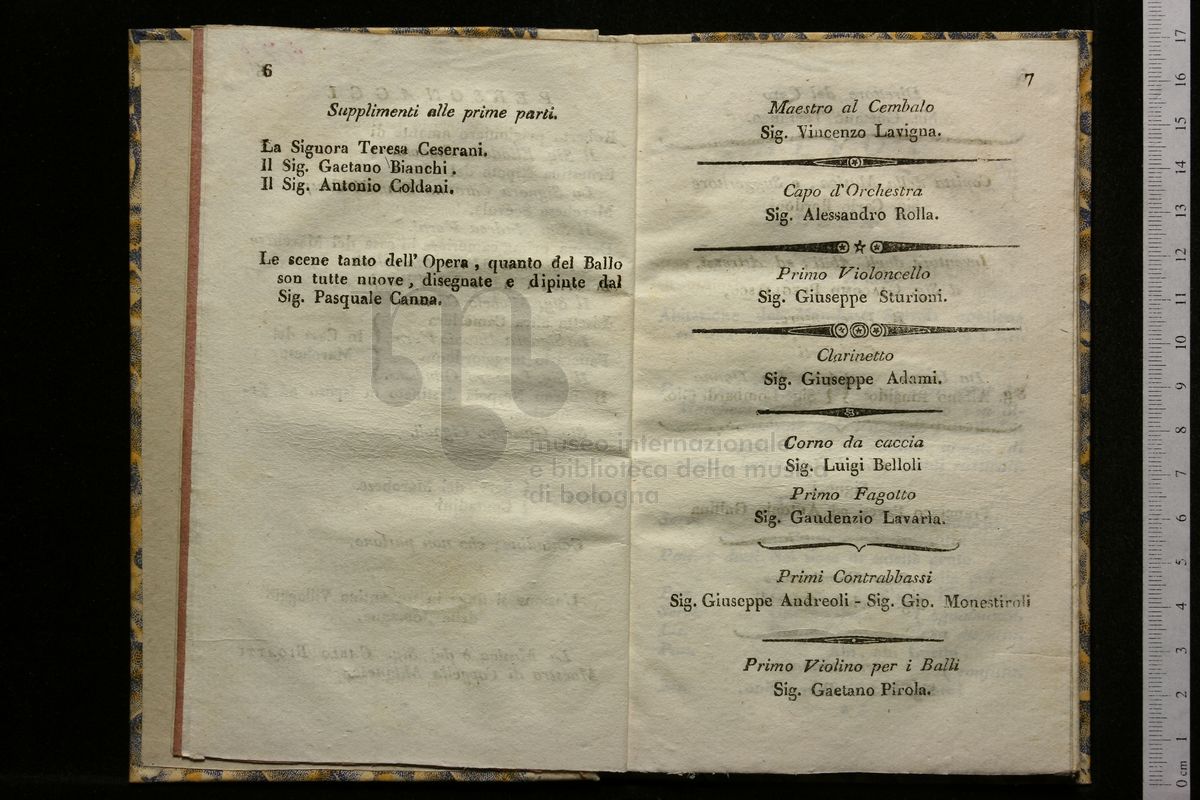 6
Supplimenti alle prime parti.
La Signora Teresa Ceserani.
Il Sig. Gaetano Bianchi.
Il Sig. Antonio Coldani.
Le scene tanto dell' Opera, quanto del Ballo
son tutte nuove, disegnate e dipinte dal
Sig. Pasquale Canna.
7
Maestro al Cembalo
Sig. Vincenzo Lavigna.
Capo d'Orchestra
Sig. Alessandro Rolla.
Primo Violoncello
Sig. Giuseppe Sturioni.
Clarinetto
Sig. Giuseppe Adami.
Corno da caccia
Sig. Luigi Belloli
Primo Fagotto
Sig. Gaudenzio Lavaria.
Primi Contrabbassi
Sig. Giuseppe Andreoli - Sig. Gio. Monestiroli
Primo Violino per i Balli
Sig. Gaetano Pirola.
museo internazionale
e biblioteca della musica
di bologna
0 cm 1 2 3 4 5 6 7 8 9 10 11 12 13 14 15 16 17